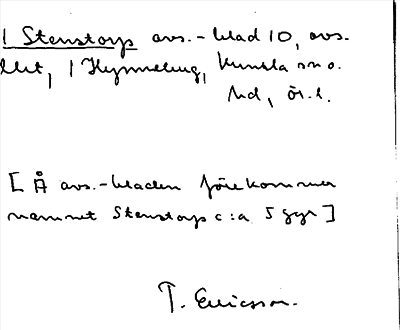 1 Stenstorps avs.-blad 10, avs.
1 Hymneberg, Kumla sn o.
hd, ör. l.
[Å avs.-bladen förekommer
namnet Stenstorps c:a 5 ggr]
T. Ericsson.